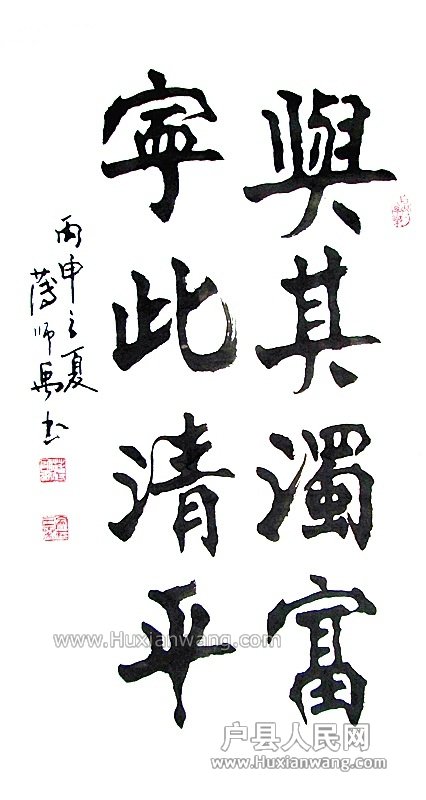 與其濁富
寧此清平
丙申之夏
薄師禹书
www.Huxianwang.com
户县人民网
www.Huxianwang.com